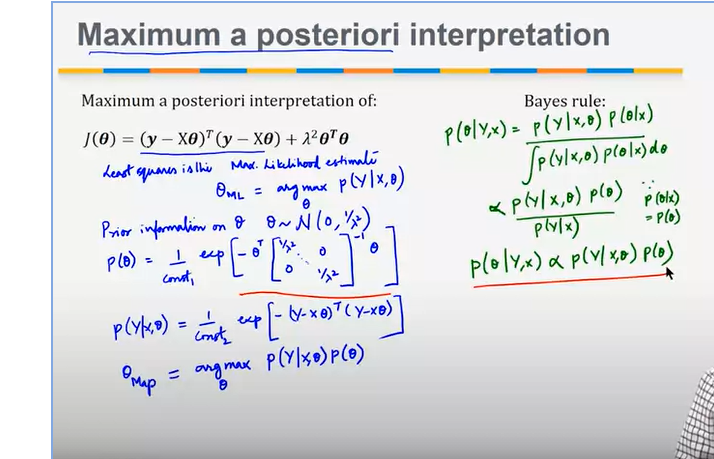 Maximum a posteriori interpretation
Maximum a posteriori interpretation of:
J(θ) = (y − Xθ)ᵀ(y − Xθ) + λ²θᵀθ
Least squares is the Max. Likelihood estimate
θ_ML = arg max_θ P(Y|X,θ)
Prior information on θ θ ~ N(0, 1/λ²)
P(θ) = 1/const₁ exp[−θᵀ [1/λ² ⋱ 0 0 1/λ²]⁻¹ θ]
P(Y|X,θ) = 1/const₂ exp[−(Y−Xθ)ᵀ(Y−Xθ)]
θ_Map = arg max_θ P(Y|X,θ) P(θ)
Bayes rule:
P(θ|Y,X) = P(Y|X,θ) P(θ|X) / ∫P(Y|X,θ) P(θ|X) dθ
∝ P(Y|X,θ) P(θ) / P(Y|X) ∵ P(θ|X) = P(θ)
P(θ|Y,X) ∝ P(Y|X,θ) P(θ)